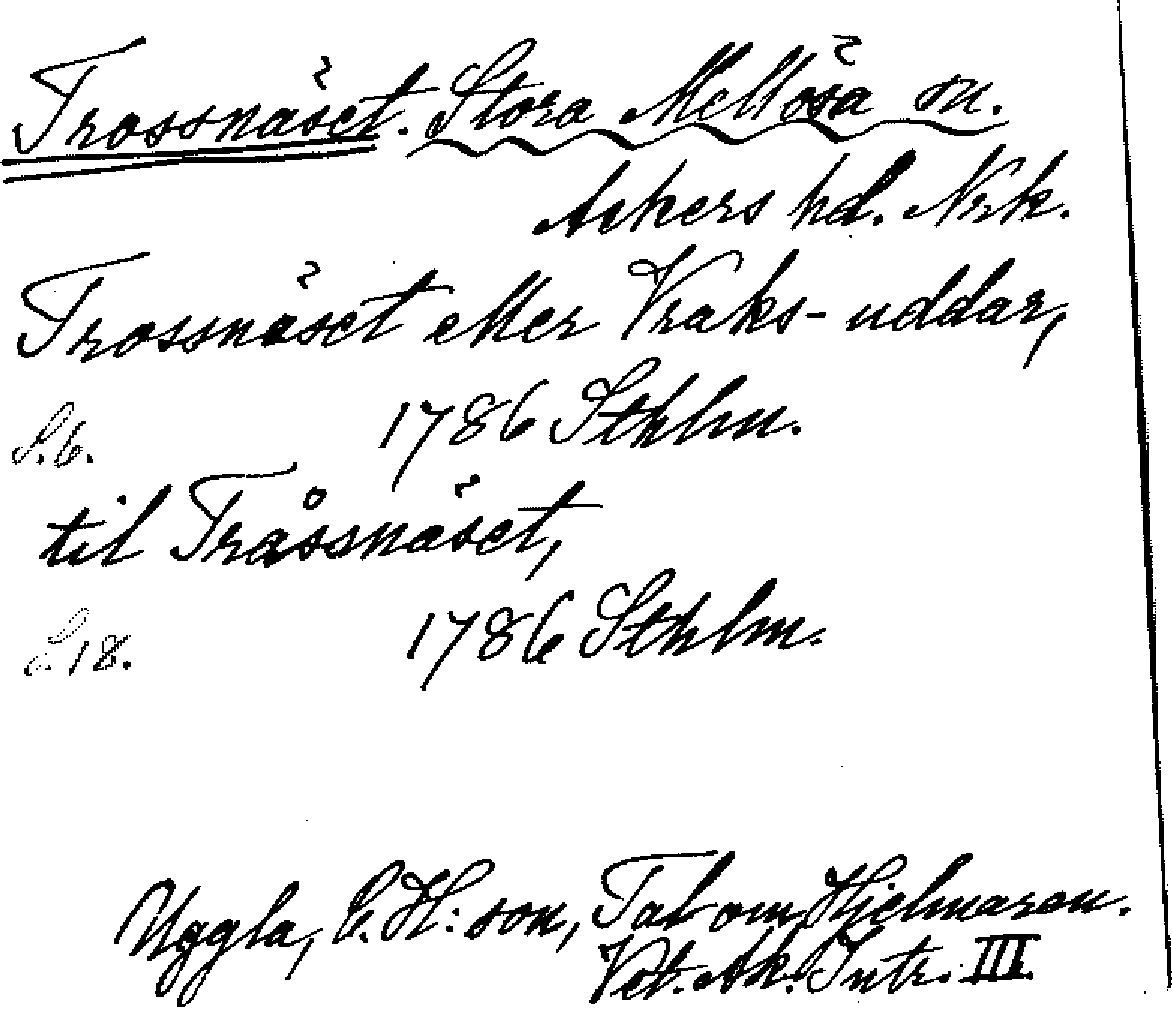 Trossnäset. Stora Mellösa sn.
Askers hd. Nrk.
Trossnäset eller Vraks-uddar,
S.6. 1786 Sthlm.
til Tråssnäset,
S.18. 1786 Sthlm.
Uggla, C. H:son, Tal om Hjelmaren.
Vet. Ak. Intr. III.